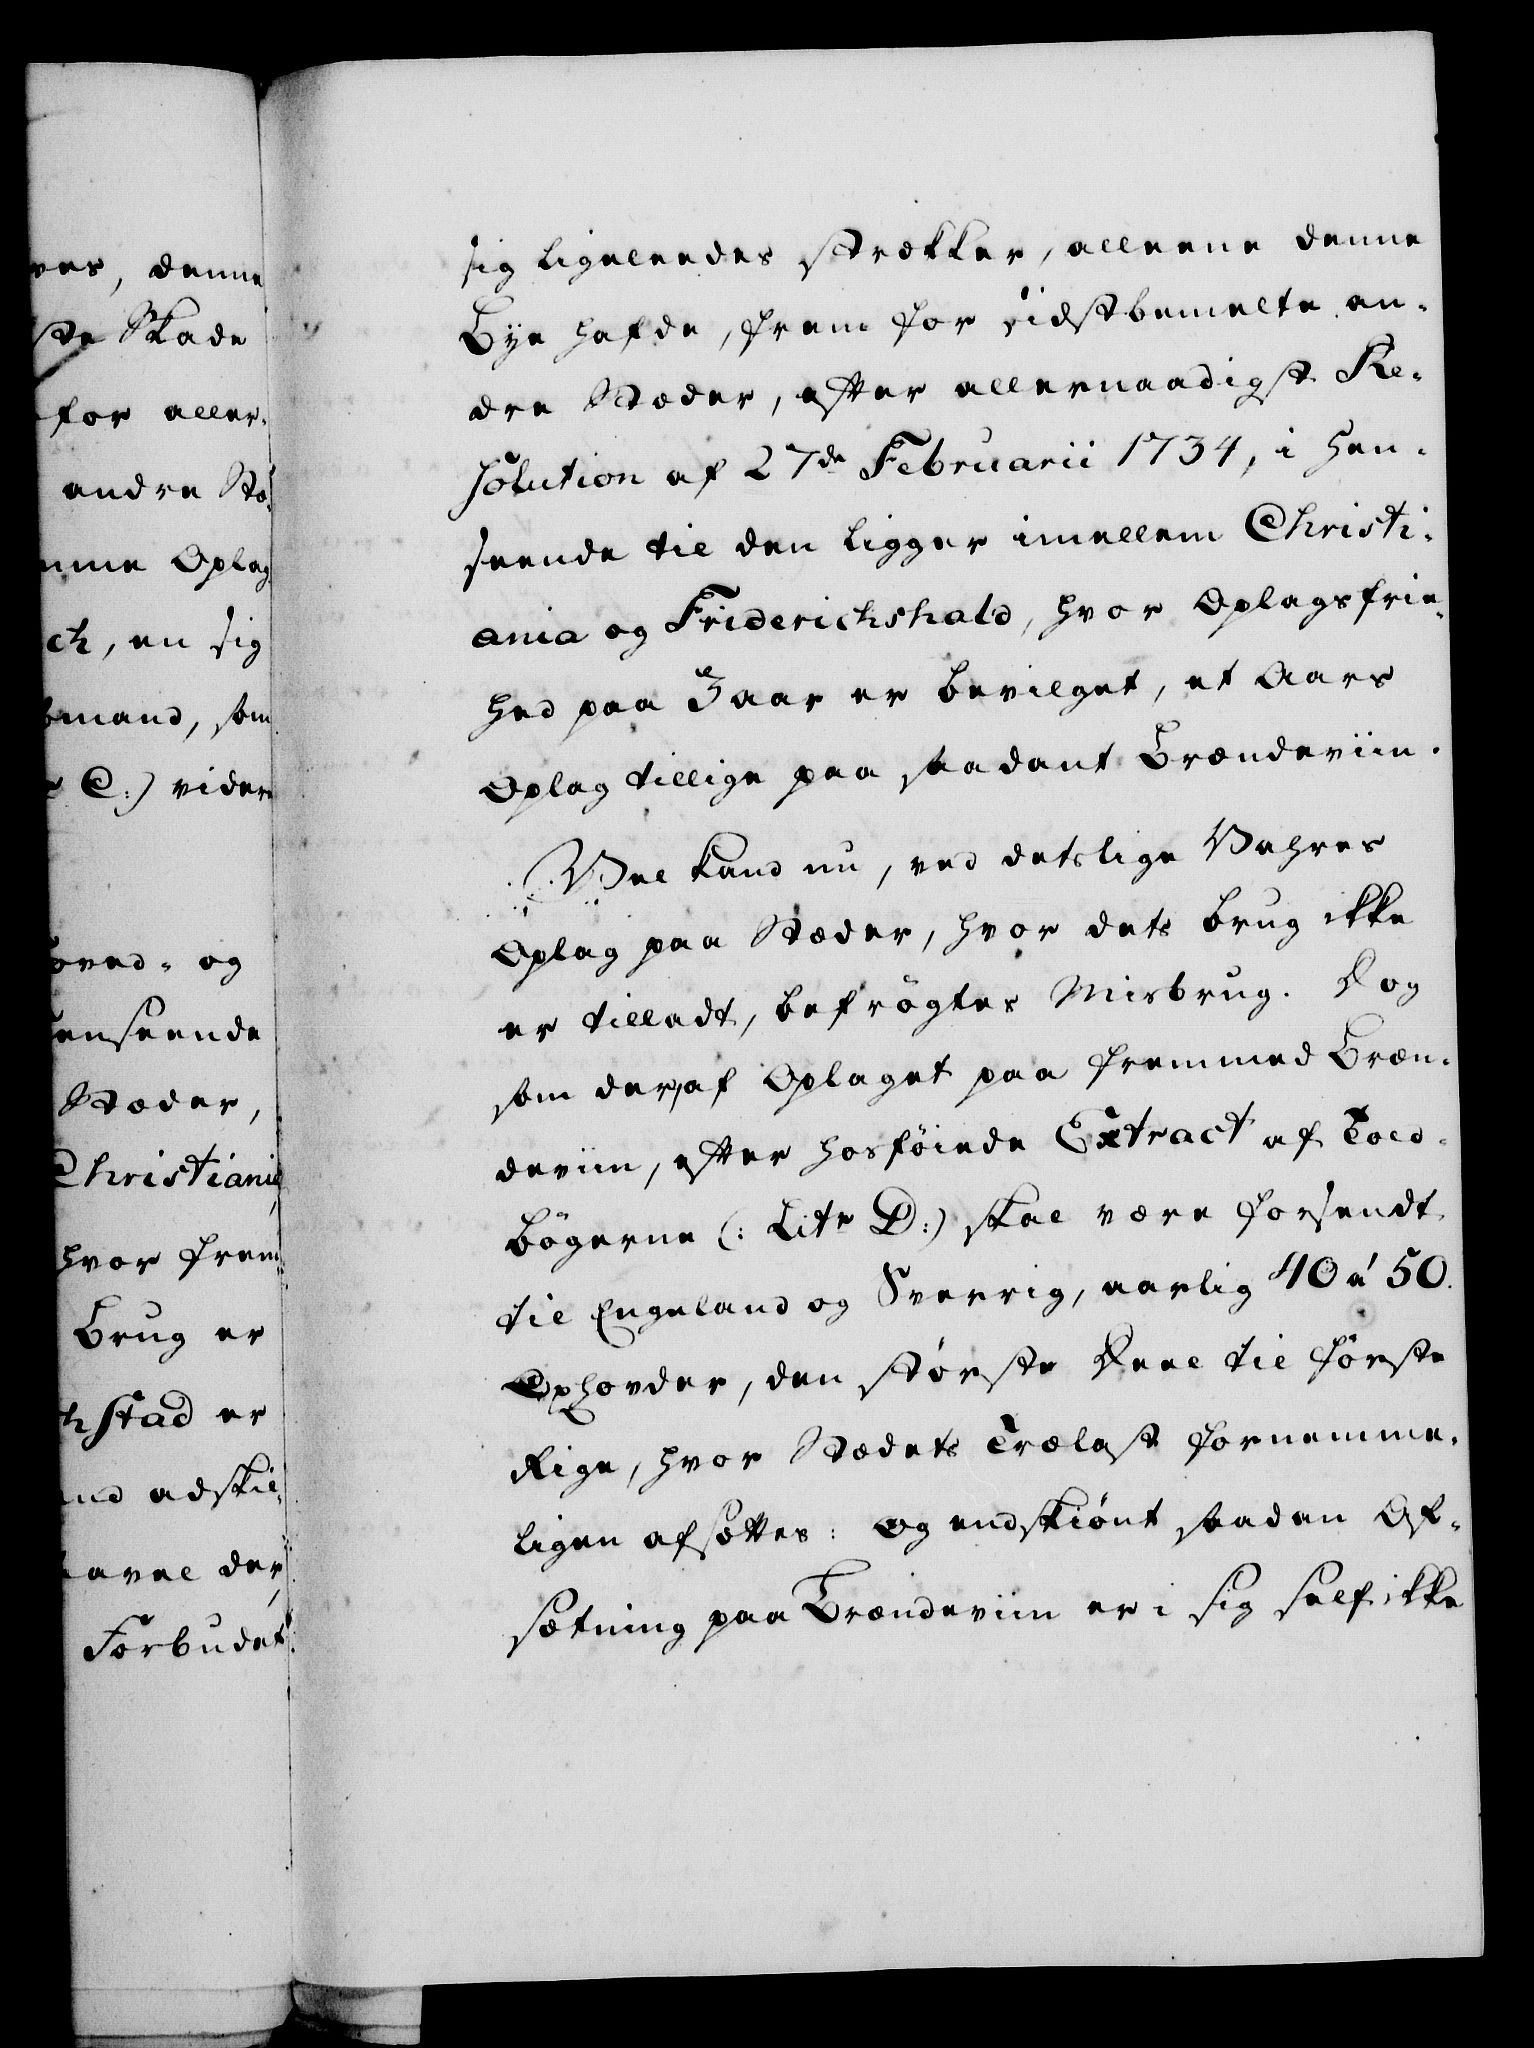 ves, denne
ste Skade
for aller-
andre Stæ-
mme Oplag
ch, en sig
bmand, som
C:) videre
oved- og
enseende
Stæder,
Christiania,
hvor frem-
Brug er
chstad er
nd adskil-
avel der,
Forbudet
sig ligeleedes strækker, alleene denne
Bye hafde, frem for sidstbemelte an-
dre Stæder, efter allernaadigst Re-
solution af 27de Februarii 1734, i Hen-
seende til den ligger imellem Christi-
ania og Friderichshald, hvor Oplagsfrie-
hed paa 3 aar er bevilget, et Aars
Oplag tillige paa saadant Brændeviin.
Vel kand nu, ved detslige Vahres
Oplag paa Stæder, hvor dets brug ikke
er tilladt, befrögtes Misbrug. Dog
som der af Oplaget paa fremmed Bræn-
deviin, efter hosföiede Extract af Told-
bögerne (: Litr D:) skal være forsendt
til Engeland og Sverrig, aarlig 40 á 50.
Oxhovder, den störste Deel til förste
Rige, hvor Stædets Trælast fornemme-
ligen afsættes: Og endskiönt saadan Af-
sætning paa Brændeviin er i sig self ikke